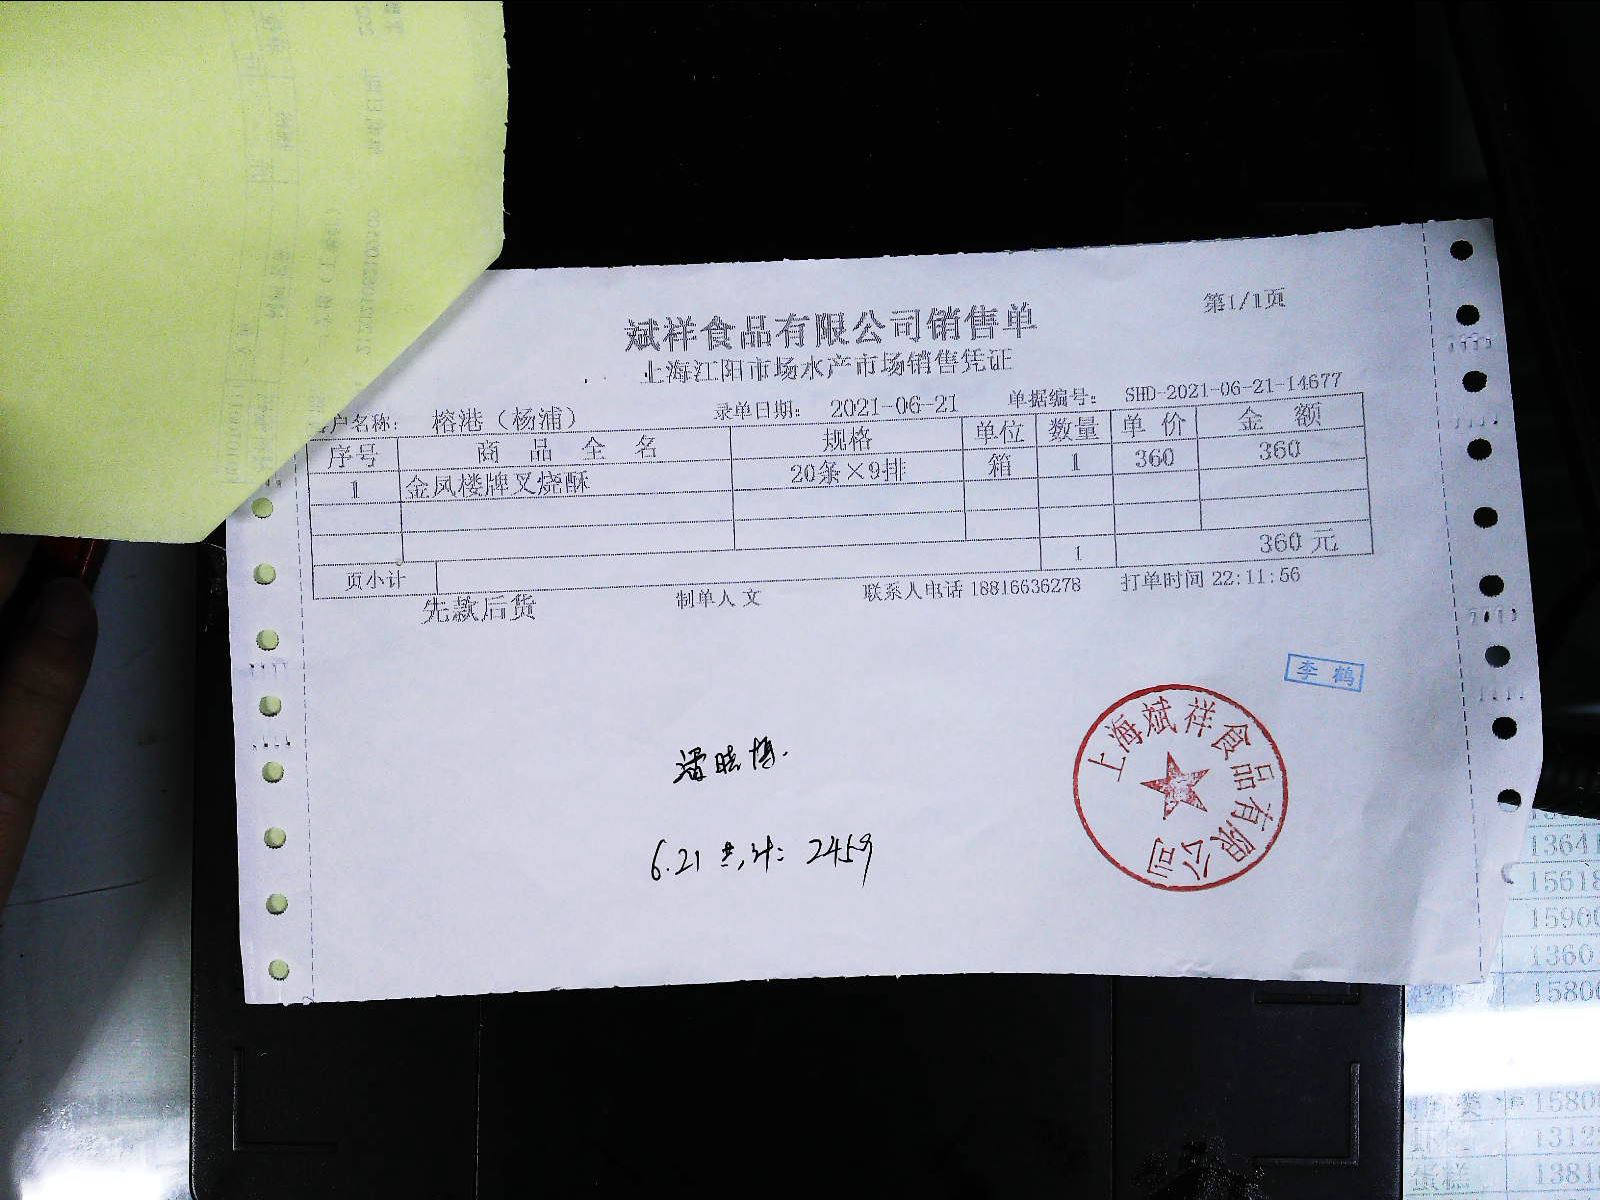 第1/1页
斌祥食品有限公司销售单
上海江阳市场水产市场销售凭证
户名称： 榕港（杨浦） 录单日期： 2021-06-21 单据编号： SHD-2021-06-21-14677
序号 商品全名 规格 单位 数量 单价 金额
1 金凤楼牌叉烧酥 20条×9排 箱 1 360 360
页小计 1 360元
先款后货 制单人 文 联系人电话 18816636278 打单时间 22:11:56
李鹤
上海斌祥食品有限公司
潘晓博.
6.21 共计: 2459
13641
15618
1590
1360
1580
类 1580
1312
蛋糕 1381